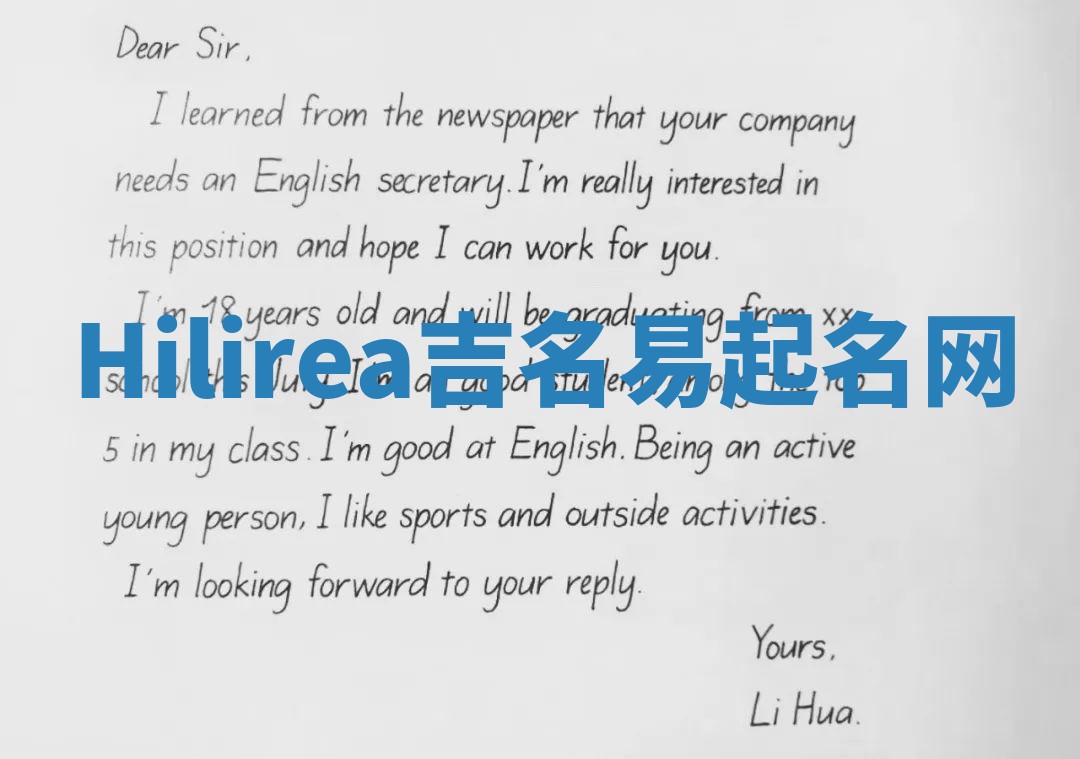 Dear Sir,
I learned from the newspaper that your company
needs an English secretary. I'm really interested in
this position and hope I can work for you.
I'm 18 years old and will be graduating from xx
Hilirea吉名易起名网
school this July. I'm a good student among the top
5 in my class. I'm good at English. Being an active
young person, I like sports and outside activities.
I'm looking forward to your reply.
Yours,
Li Hua.